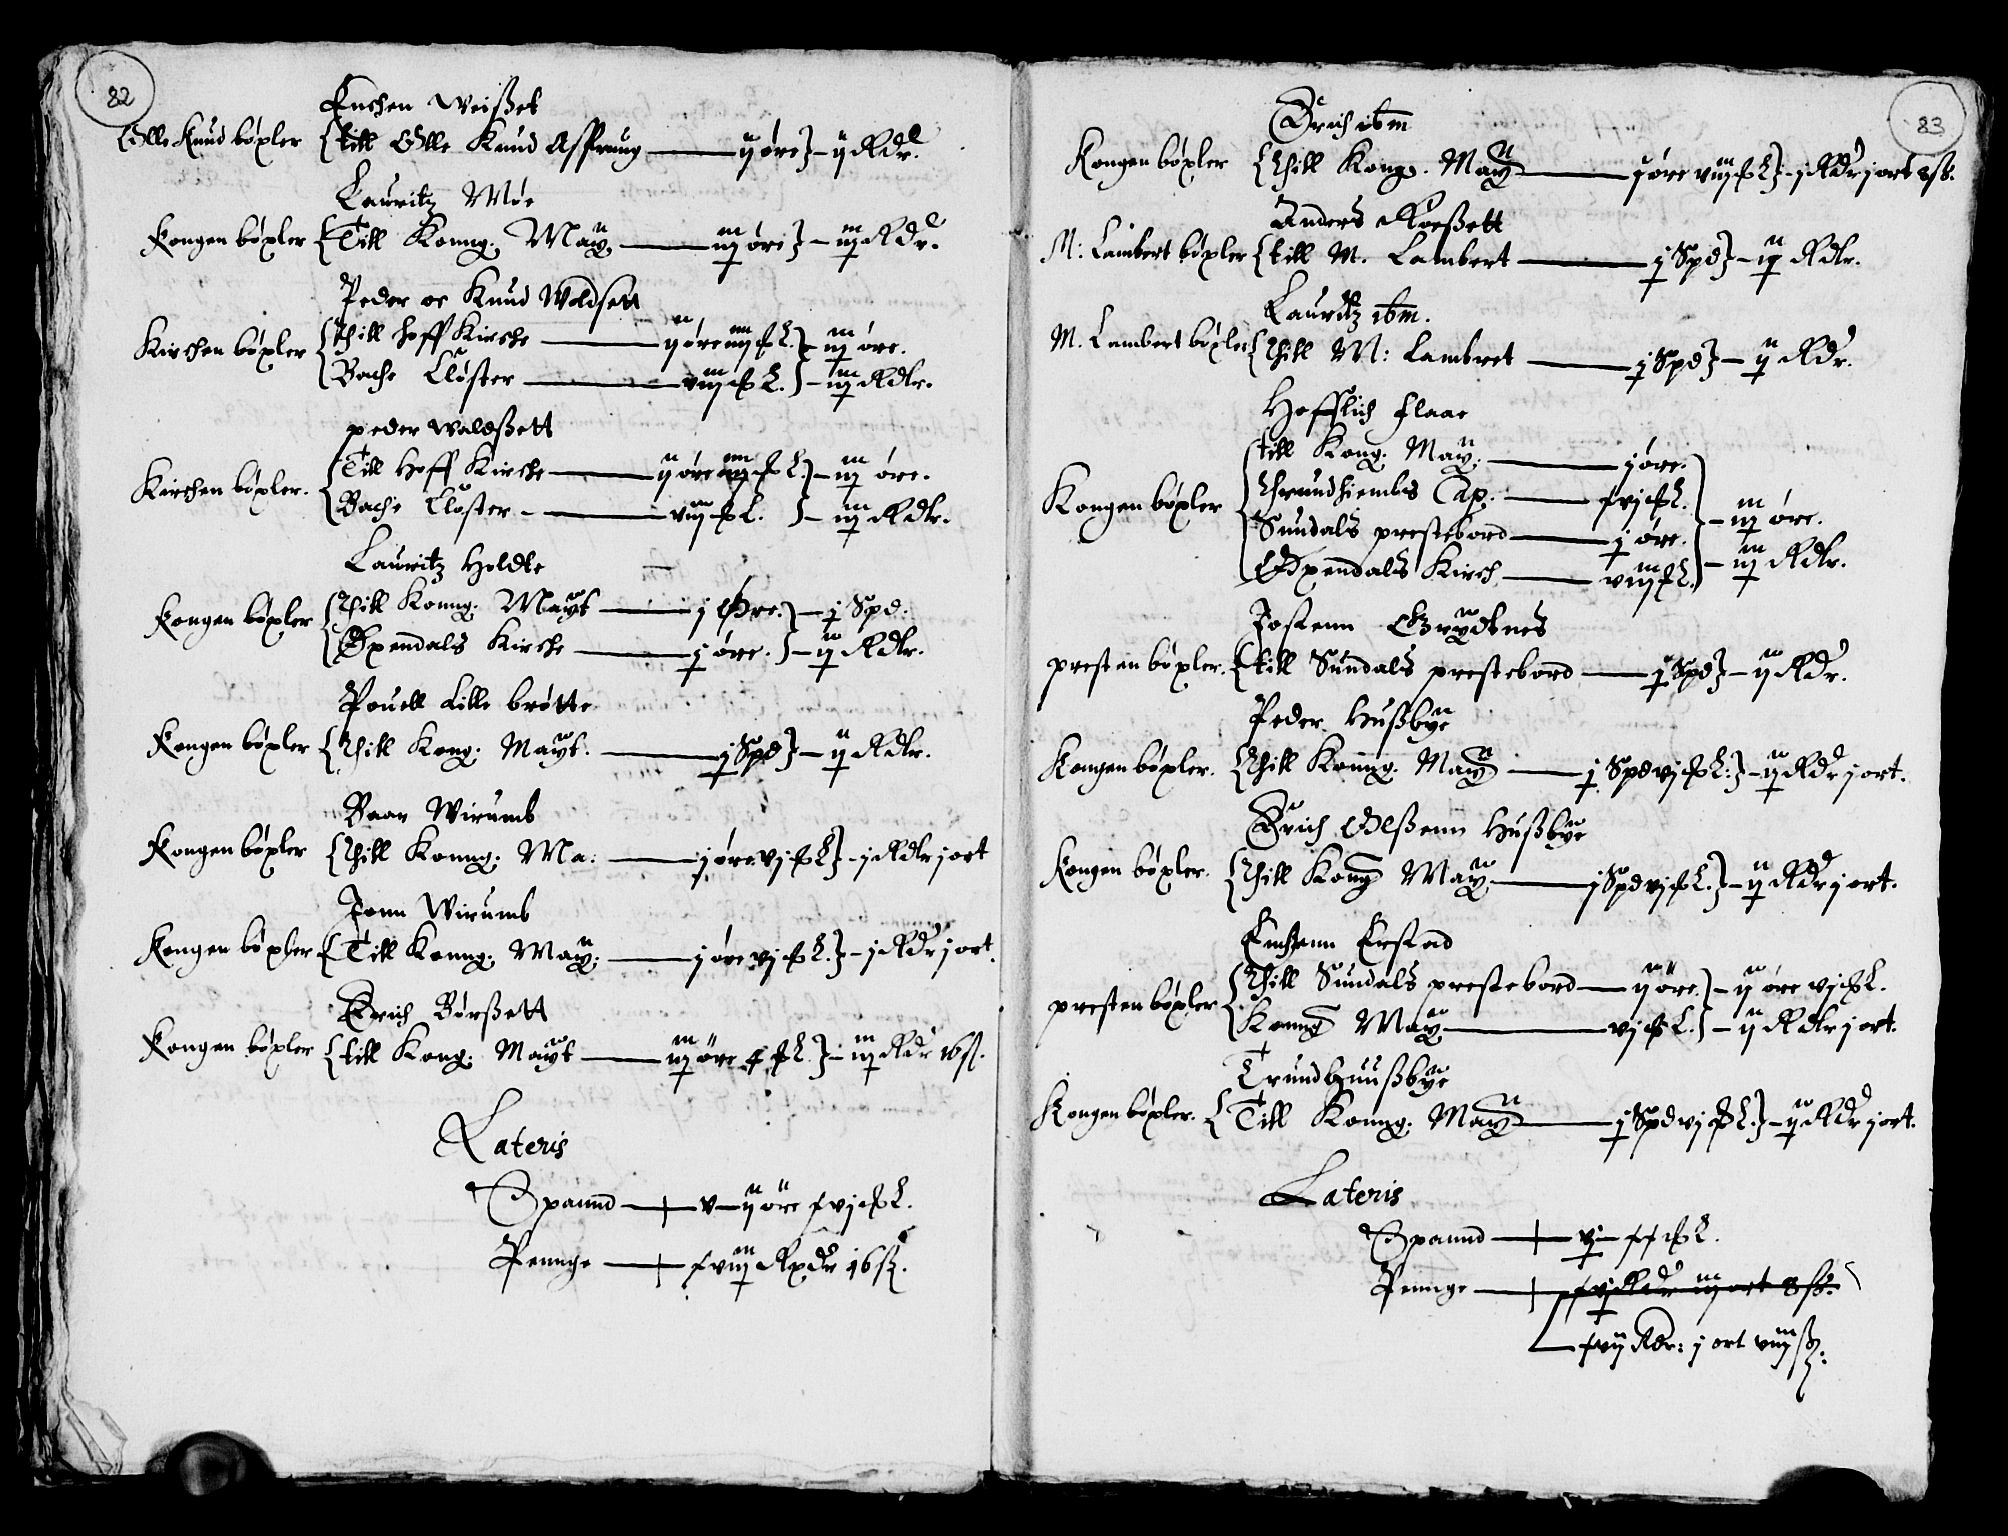 82
Enchen Weißet
Olle Knud bøxler {till Olle Knud Affprung — ij øre} – ij Rdr.
Lauritz Moe
Kongen bøxler {Till Konng. May. — iij øre} – iij Rdr.
Peder oc Knud Woldsett
Kirchen bøxler {Thill Hoff Kirche — ij øre iiij [pd] L.} – iij øre.
Bache Closter — viij [pd] L.} – iij Rdlr.
peder Woldßett
Kirchen bøxler. {Till Hoff Kirche — ij øre iiij L.} – iij øre.
Bache Closter – — viij L. } – iij Rdlr.
Lauritz Holdte
Kongen bøxler {Thill Konng. Mayt — j Øre.} – j Spd.
Øxendals Kirche — j øre.} – ij Rdlr.
Pouell Lille brøtte
Kongen bøxler {Thill Kong. Mayt. — j Spd} – ij Rdlr.
Baar Wirumb
Kongen bøxler {Thill Konng. Ma: — j øre vj L} – j Rdlr j ort
Jonn Wirumb
Kongen bøxler {Till Konng. May: — j øre vj L.} – j Rdr j ort.
Erich Børßett
Kongen bøxler {till Kong. Mayt — iij øre L.} – iij Rdr 16 ß.
Lateris
Spannd — v – ij øre xvj L.
Pennge — xviij Rxdr 16 ß.
83
Erich ibm
Kongen bøxler {Thill Kong. May — j øre viij L} – j Rdr j ort 8 ß.
Anders Roeßett
M: Lambert bøxler {till M. Lambert — j Spd} – ij Rdlr.
Lauritz ibm.
M. Lambert bøxler {Thill M: Lambret — j Spd} – ij Rdr.
Hofflich flaae
Kongen bøxler {till Kong. May. — j øre.
Thrundhiembs Cap. — xvj L.
Sundals prestebord — j øre. } – iij øre.
Øxendals Kirch — viij L.} – iij Rdlr.
Jostenn Grydtnes
presten bøxler. {till Sundals prestebord — j Spd} – ij Rdr.
Peder Hußbye
Kongen bøxler. {Thill Konng. May — j Spd vj L:} – ij Rdr j ort.
Erich Olßenn Hußbye
Kongen bøxler. {Thill Kong May. — j Spd vj L.} – ij Rdr j ort.
Enchenn Erstad
presten bøxler {Thill Sundals prestebord — ij øre.} – ij øre vj L.
Konng May — vj L.} – ij Rdlr j ort.
Trund Huußbye
Kongen bøxler. {Till Konng. May — j Spd vj L.} – ij Rdr j ort.
Lateris
Spannd — vj – xx L.
Pennge — xvj Rdr iij ort 8 ß.
xvij Rdr: j ort viij ß: